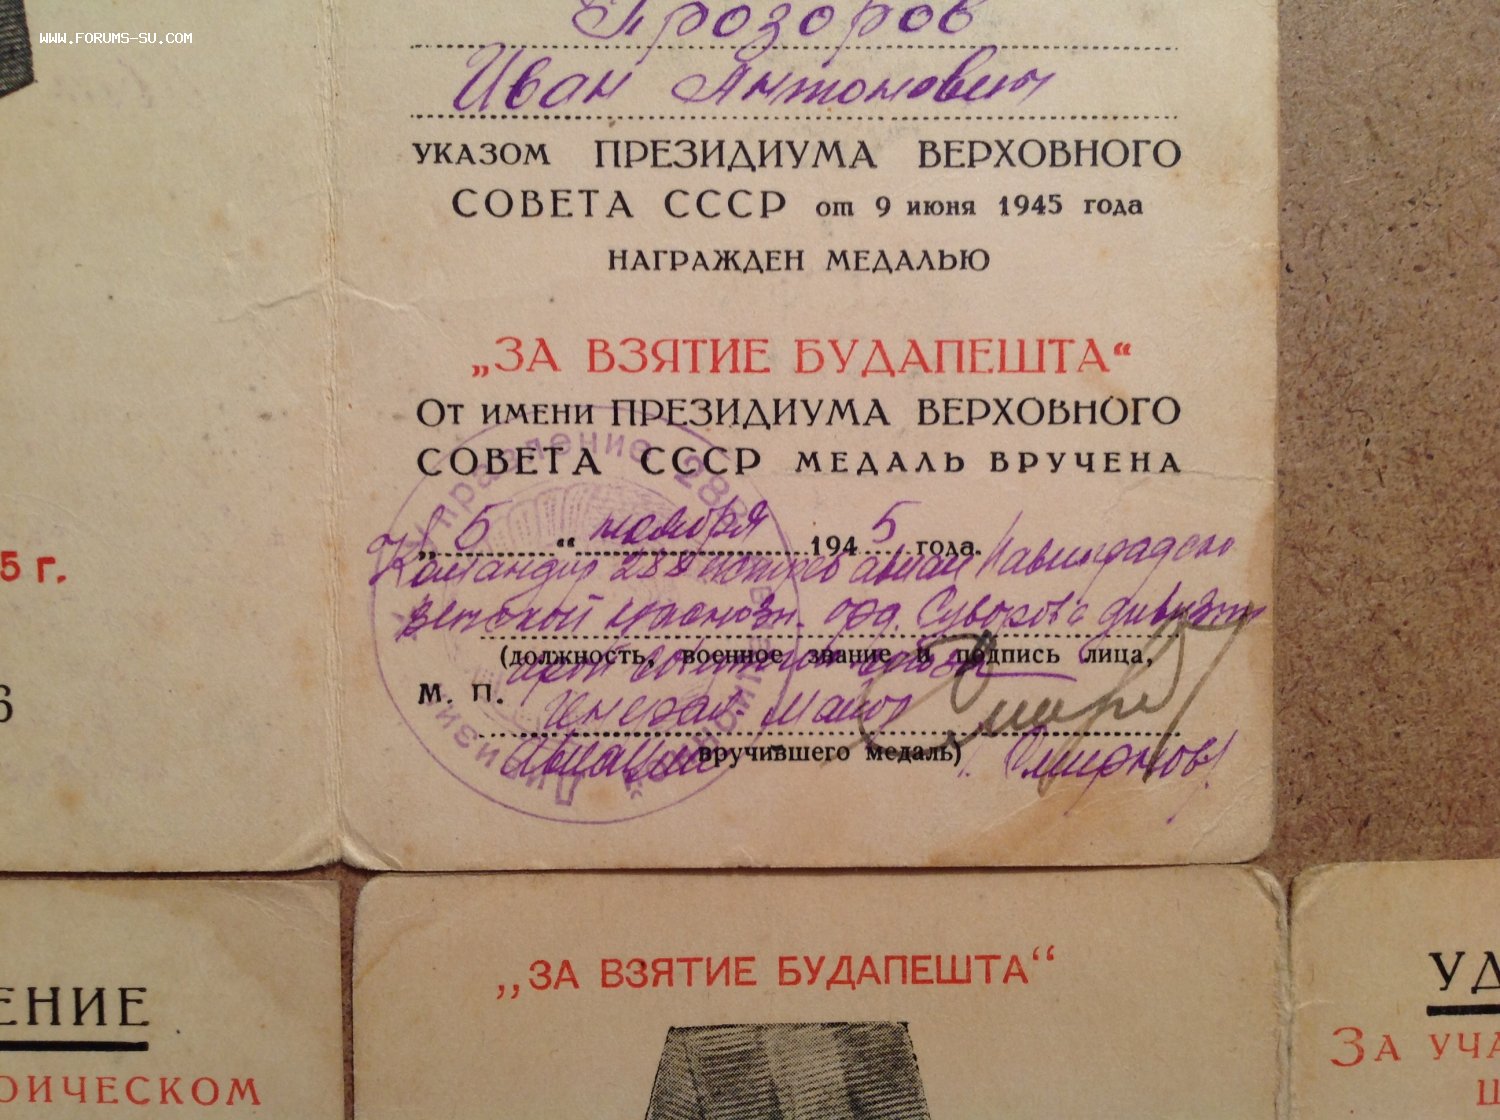 WWW.FORUMS-SU.COM
Прозоров
Иван Антонович
УКАЗОМ ПРЕЗИДИУМА ВЕРХОВНОГО
СОВЕТА СССР от 9 июня 1945 года
НАГРАЖДЕН МЕДАЛЬЮ
„ЗА ВЗЯТИЕ БУДАПЕШТА“
ОТ ИМЕНИ ПРЕЗИДИУМА ВЕРХОВНОГО
СОВЕТА СССР МЕДАЛЬ ВРУЧЕНА
„5“ ноября 1945 года.
Командир 288 истреб авиац Павлоградско
Венской краснозн. орд. Суворова дивизии
(должность, военное звание и подпись лица,
герой советского союза
М. П. Генерал-майор
Авиации вручившего медаль) Смирнов
Управление 288
5 г.
6
ЕНИЕ
ОИЧЕСКОМ
„ЗА ВЗЯТИЕ БУДАПЕШТА“
УД
ЗА УЧА
Ш